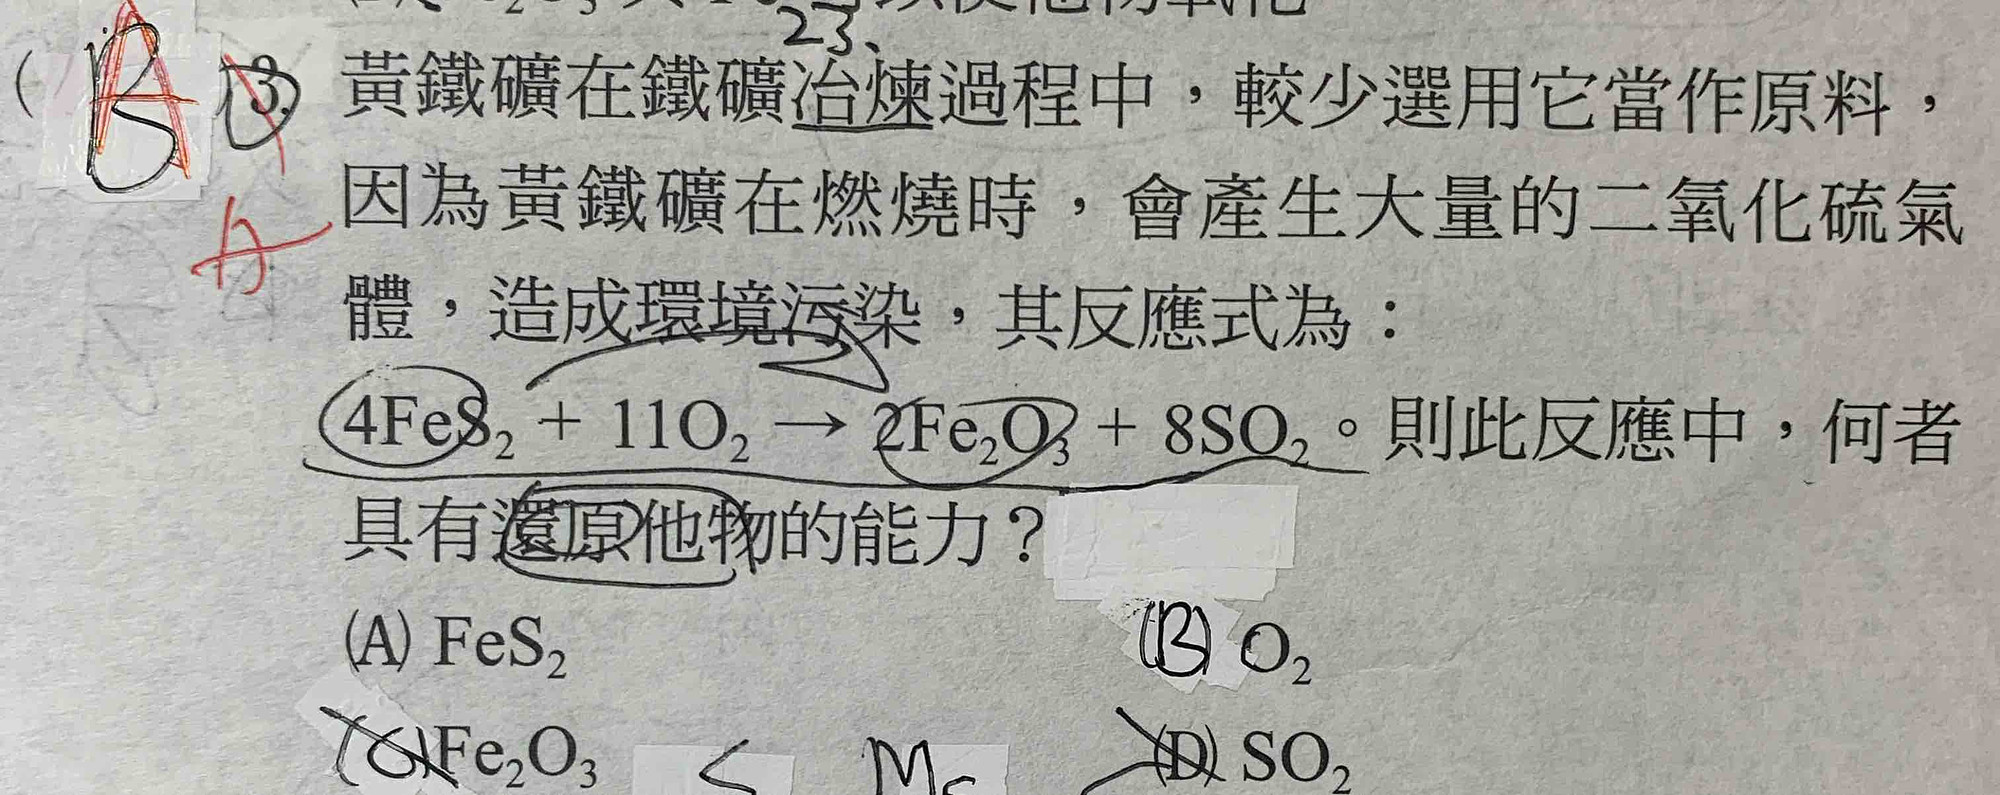 23、
( B 3. 黃鐵礦在鐵礦冶煉過程中，較少選用它當作原料，
A 因為黃鐵礦在燃燒時，會產生大量的二氧化硫氣
體，造成環境污染，其反應式為：
4FeS₂ + 11O₂ → 2Fe₂O₃ + 8SO₂。則此反應中，何者
具有還原他物的能力？
(A) FeS₂ (B) O₂
(C) Fe₂O₃ (D) SO₂